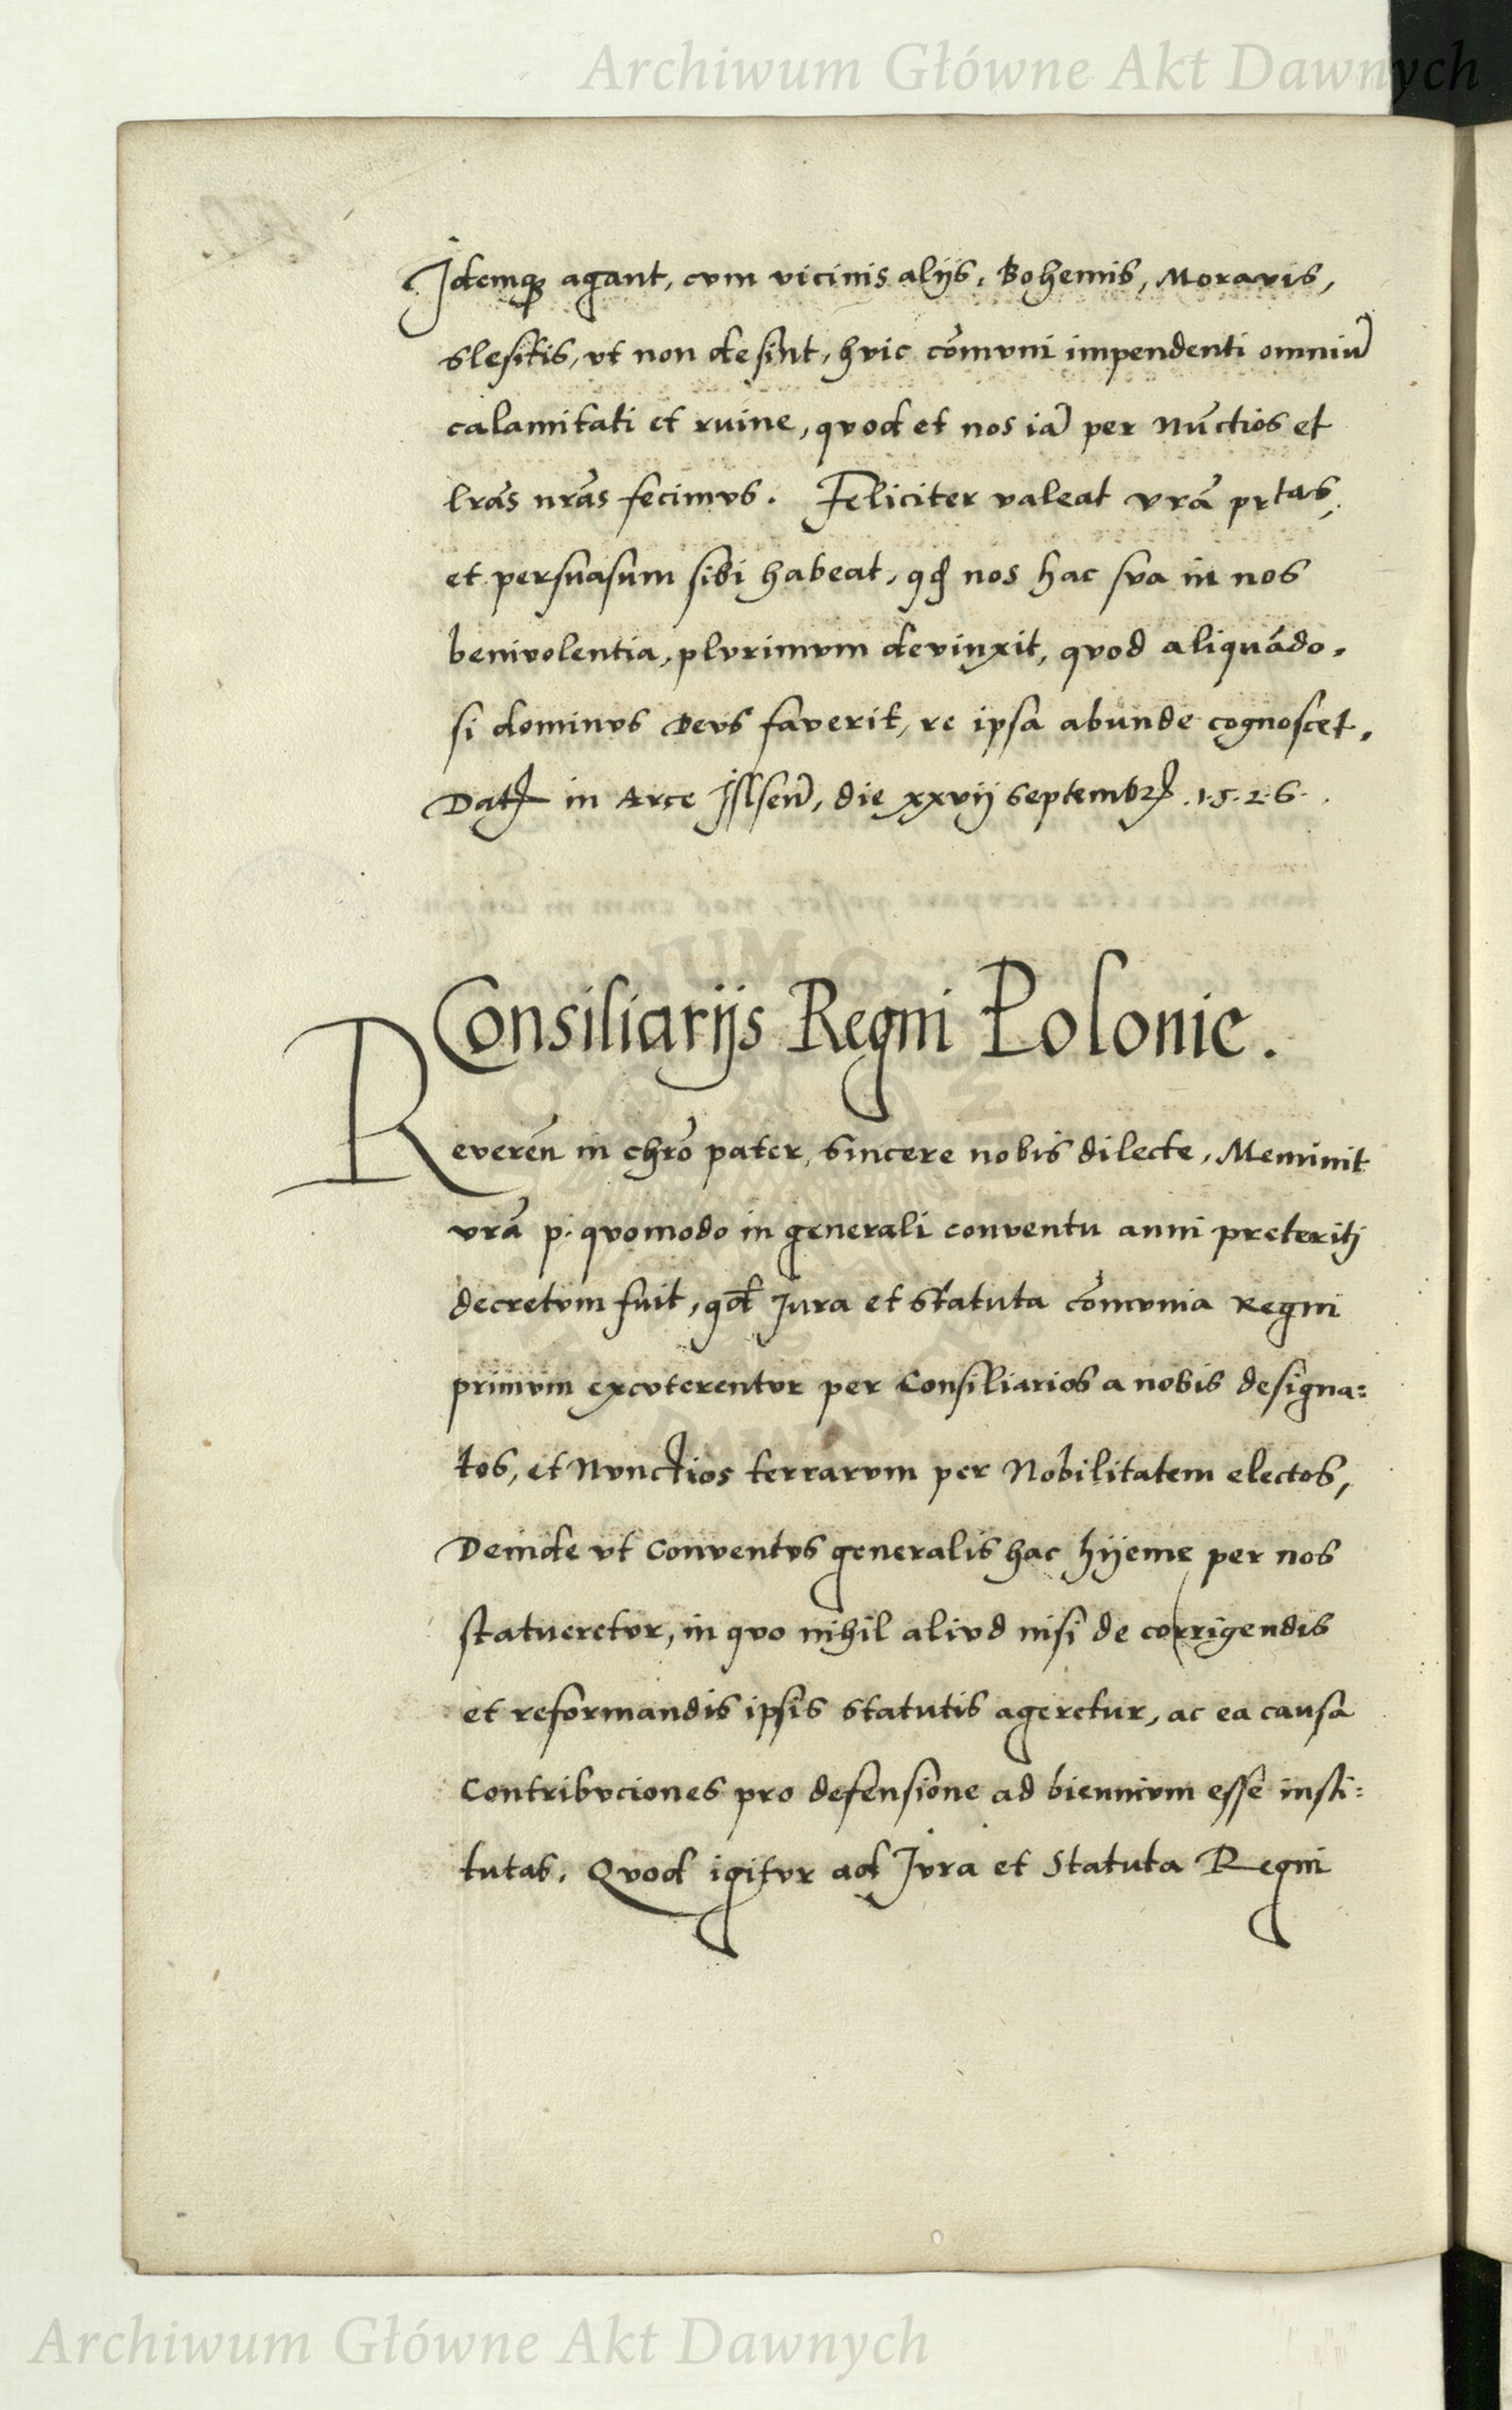 Archiwum Główne Akt Dawnych
Idemqȝ agant, cvm vicinis alijs, Bohemis, Moravis,
Slesitis, vt non desint, hvic cōmvni impendenti omniū
calamitati et rvine, qvod et nos iā per Nūctios et
lrās nrās fecimvs. Feliciter valeat vrā prtas,
et persuasum sibi habeat, qđ nos hac sva in nos
benivolentia, plvrimvm devinxit, qvod aliquādo,
si dominvs Devs faverit, re ipsa abunde cognoscet.
Datꝭ in Arce Jslseñ, die xxvij Septembrꝭ .1.5.2.6.
Consiliarijs Regni Polonie.
Reverēn in chrō pater, sincere nobis dilecte, Meminit
vrā p. qvomodo in generali conventu anni preteritj
decretvm fuit, qđ Jura et Statuta cōmvnia Regni
primvm excvterentvr per Consiliarios a nobis designa=
tos, et Nvnctios terrarvm per Nobilitatem electos,
Deinde vt Conventvs generalis hac hijeme per nos
statueretvr, in qvo nihil alivd nisi de corrigendis
et reformandis ipsis statutis ageretur, ac ea causa
Contribvciones pro defensione ad biennivm esse insti=
tutas. Qvod igitvr ad Jvra et Statuta Regni
Archiwum Główne Akt Dawnych